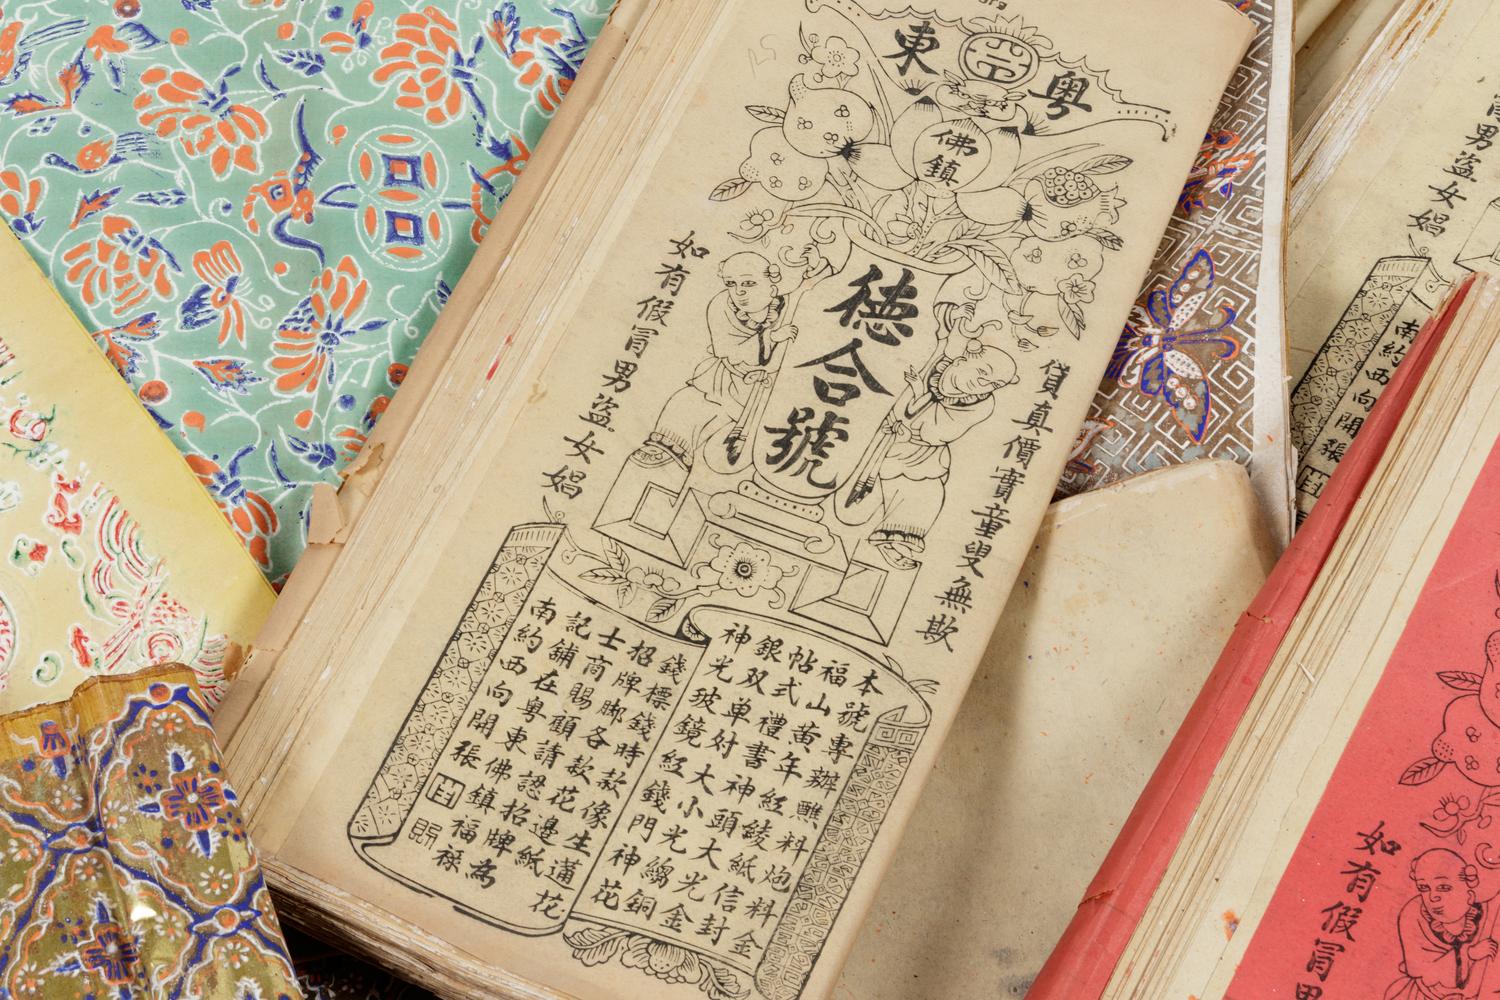 粵東
佛鎮
德合號
貨真價實童叟無欺
如有假冒男盜女娼
本號專辦醮料炮料金
福山黃年紅綾紙信封
帖式禮書神頭大光金
銀双单対大小光綉銅
神光玻鏡紅錢門神花
錢標錢時款像生蓪花
招牌脚各款花邊紙
士商賜顧請認招牌為
記舖在粤東佛鎮福祿
南約西向開張
男盜女娼
南約西向開張
如有假冒男